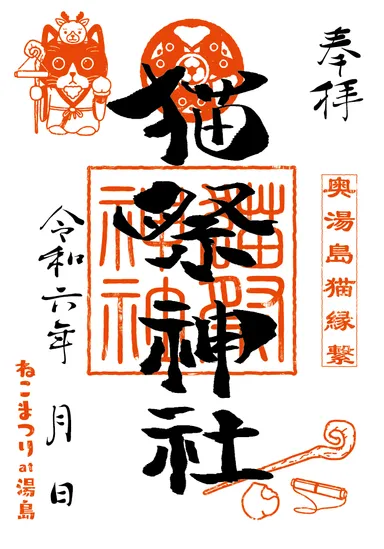 奉拝
奥湯島猫縁繋
猫祭神社
令和六年 月 日
ねこまつり at 湯島